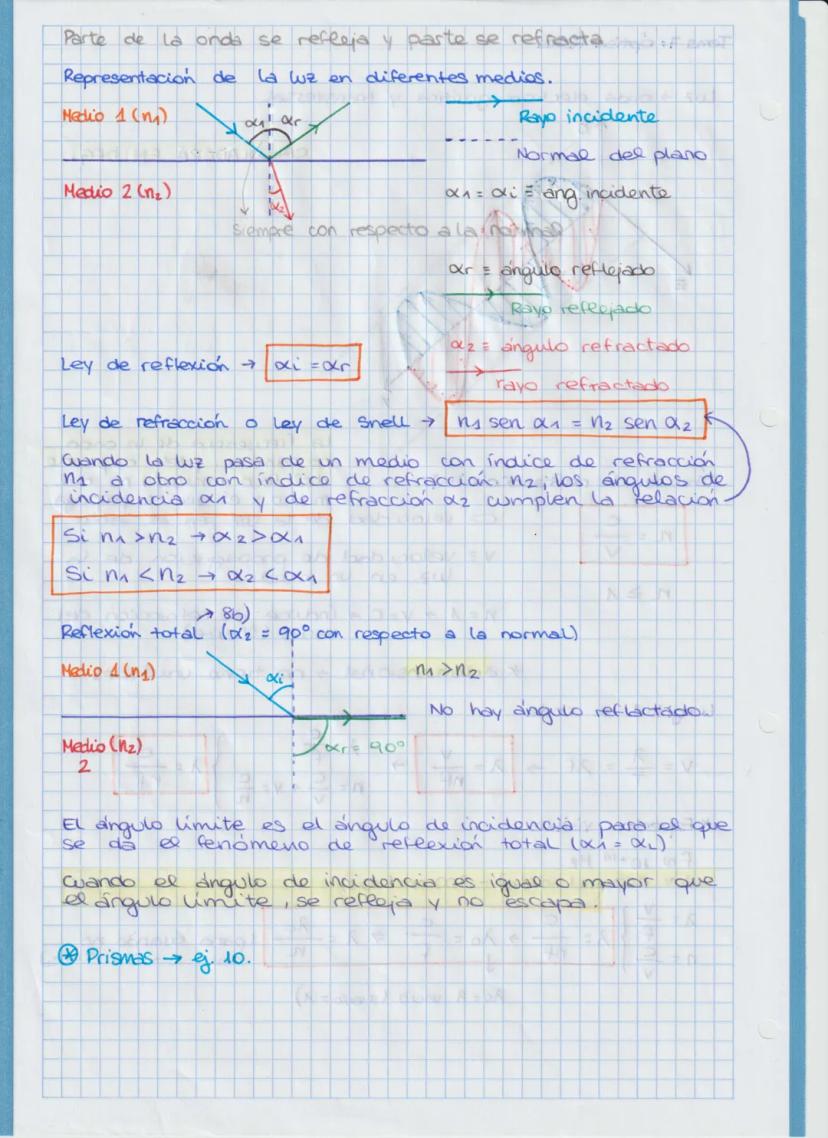 Parte de la onda se refleja y parte se refracta
Representación de la luz en diferentes medios.
Medio 1 (n1)
α1 αr
Rayo incidente
Normal del plano
Medio 2 (n2)
α2
α1 = αi ≡ áng. incidente
Siempre con respecto a la normal
αr ≡ ángulo reflejado
Rayo reflejado
α2 ≡ ángulo refractado
rayo refractado
Ley de reflexión → αi = αr
Ley de refracción o Ley de Snell → n1 sen α1 = n2 sen α2
Cuando la luz pasa de un medio con índice de refracción
n1 a otro con índice de refracción n2, los ángulos de
incidencia α1 y de refracción α2 cumplen la relación
Si n1 > n2 → α2 > α1
Si n1 < n2 → α2 < α1
→ 8b)
Reflexión total (α2 = 90° con respecto a la normal)
Medio 1 (n1)
αi
n1 > n2
No hay ángulo reflactado.
Medio (n2)
2
αr = 90°
El ángulo límite es el ángulo de incidencia para el que
se da el fenómeno de reflexión total (α1 = αL)
Cuando el ángulo de incidencia es igual o mayor que
el ángulo límite, se refleja y no escapa.
⊛ Prismas → ej. 10.